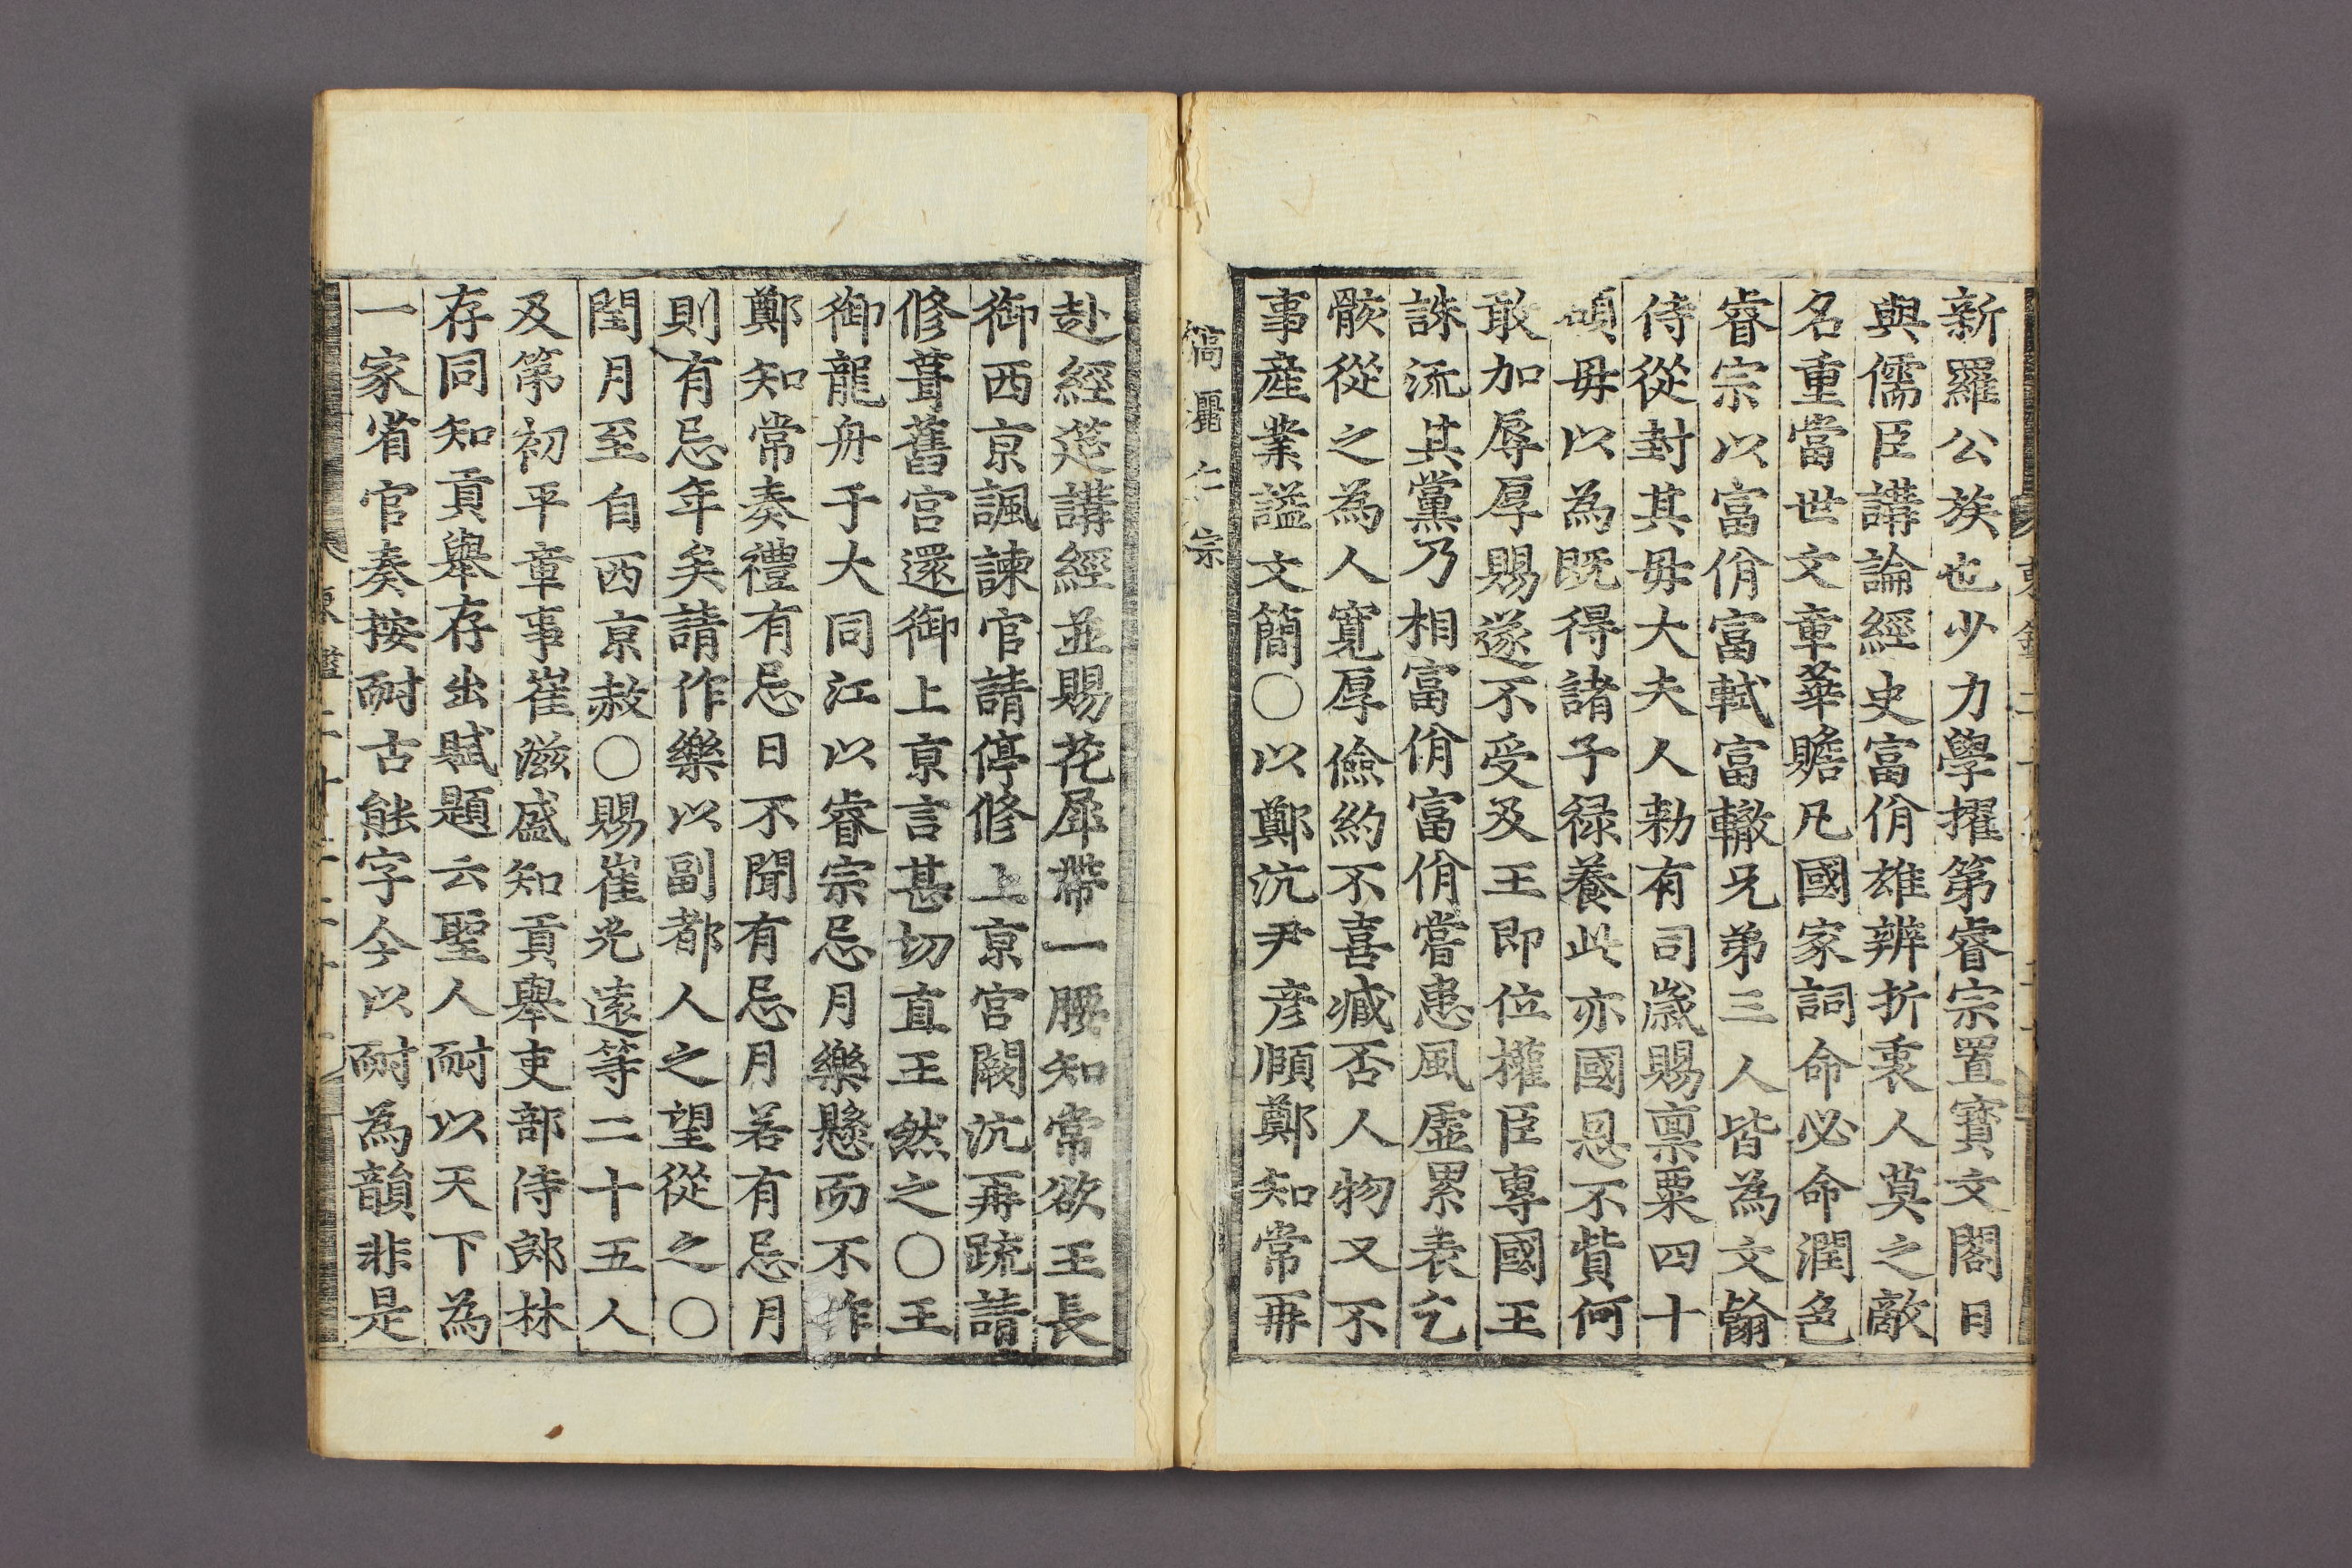 新羅公族也少力學擢第睿宗置寶文閣日
與儒臣講論經史富佾雄辨折衷人莫之敵
名重當世文章華贍凡國家詞命必命潤色
睿宗以富佾富軾富轍兄弟三人皆為文翰
侍從封其母大夫人勑有司歲賜稟粟四十
碩母以為既得諸子祿養此亦國恩不貲何
敢加辱厚賜遂不受及王即位權臣專國王
誅流其黨乃相富佾富佾嘗患風虛累表乞
骸從之為人寬厚儉約不喜臧否人物又不
事産業謚文簡○以鄭沆尹彦頤鄭知常再
高麗仁宗
赴經筵講經並賜花犀帶一腰知常欲王長
御西京諷諫官請停修上京宮闕沆再疏請
修葺舊宮還御上京言甚切直王然之○王
御龍舟于大同江以睿宗忌月樂懸而不作
鄭知常奏禮有忌日不聞有忌月若有忌月
則有忌年矣請作樂以副都人之望從之○
閏月至自西京赦○賜崔光遠等二十五人
及第初平章事崔滋盛知貢舉吏部侍郎林
存同知貢舉存出賦題云聖人耐以天下為
一家省官奏按耐古能字今以耐為韻非是